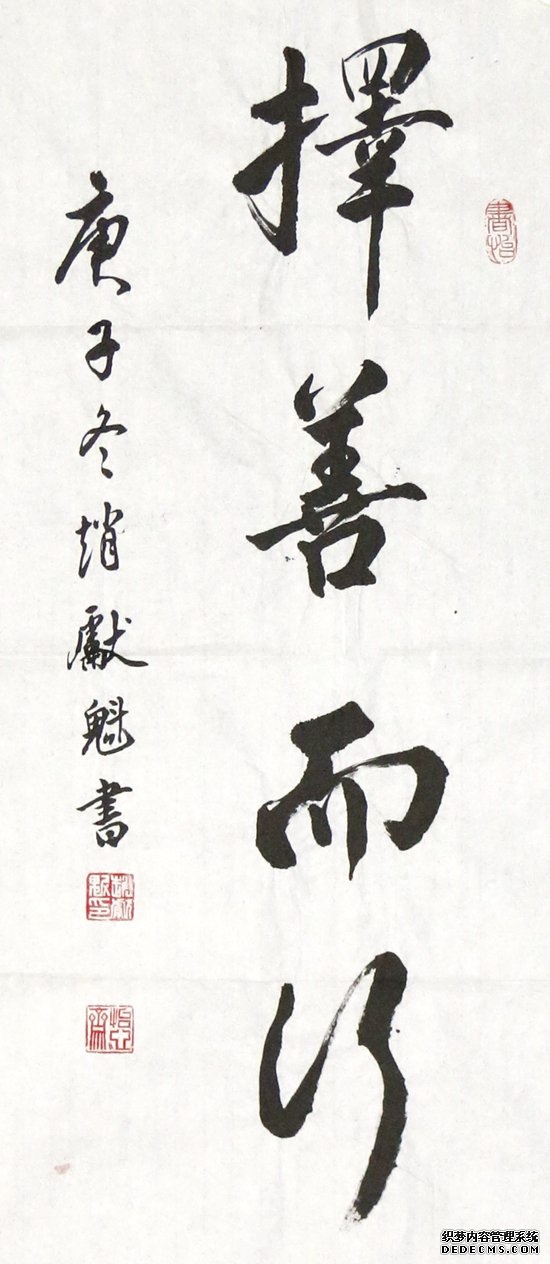 擇善而行
庚子冬趙獻魁書
织梦内容管理系统
DEDECMS.COM